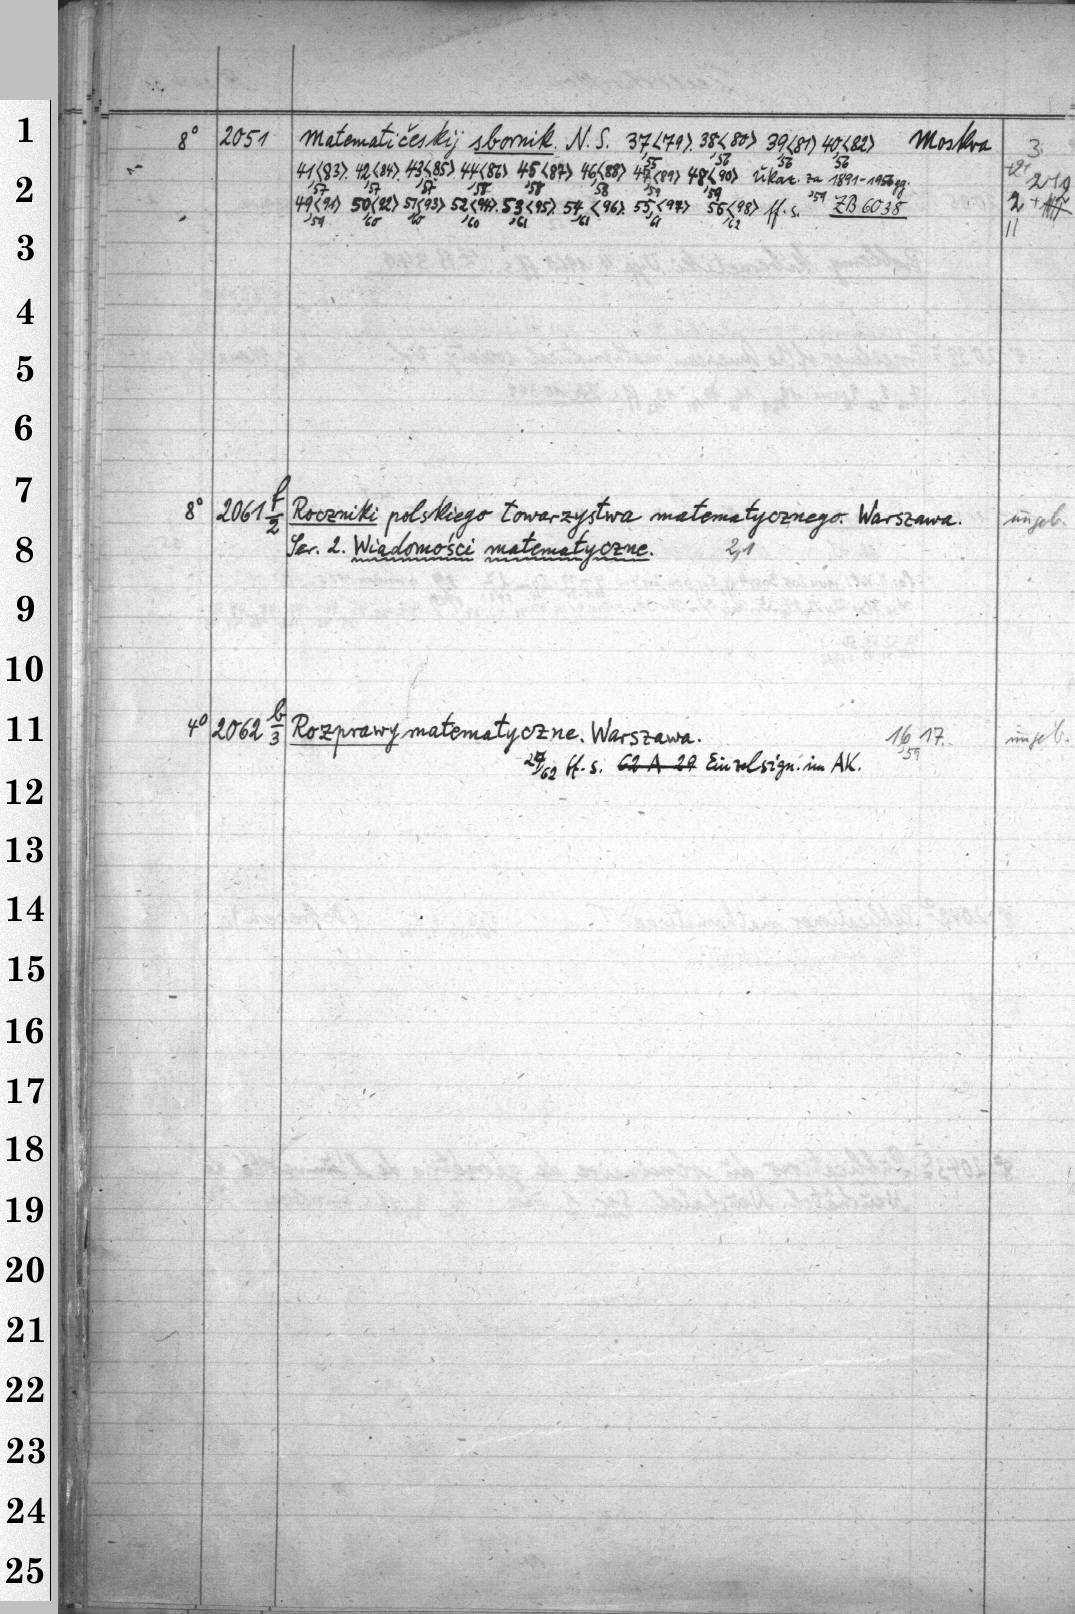 1
8° 2051 Matematičeskij sbornik. N.S. 37<79>. 38<80> 39<81> 40<82> Moskva 3
'55 '56 '56 '56
2
41<83>. 42<84>. 43<85> 44<86> 45<87> 46<88> 47<89> 48<90> Ukaz. za 1891-1956gg.
'57 '57 '57 '58 '58 '58 '59 '59 '59
49<91> 50<92> 51<93> 52<94>. 53<95>. 54<96>. 55<97> 56<98> ff.s. ZB 6038 2
'59 '60 '60 '60 '61 '61 '61 '62 11
3
4
5
6
7
8° 2061 f/2 Roczniki polskiego towarzystwa matematycznego. Warszawa. ungeb.
8
Ser. 2. Wiadomości matematyczne. 2,1
9
10
11
4° 2062 b/3 Rozprawy matematyczne. Warszawa. 16 17. ungeb.
'59
/62 ff.s. 62 A 29 Einzelsign. im AK.
12
13
14
15
16
17
18
19
20
21
22
23
24
25